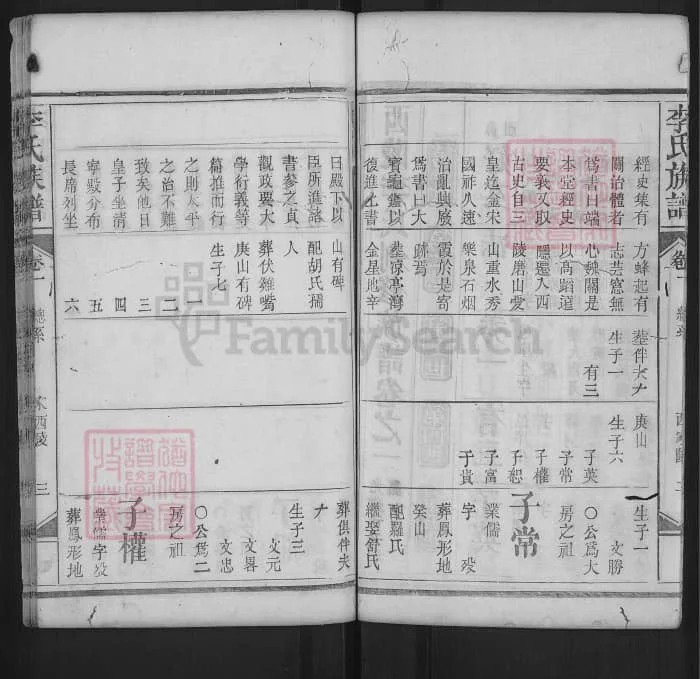 李氏族譜
卷一
經史集有
關治體者
為書曰端
本堂經史
要義又取
古史自三
皇迄金宋
國祚久速
治亂興廢
為書曰大
寶龜鑑以
復進上書
方蜂起有
志芸窻無
心魏闕是
以高蹈遠
隱遷入西
陵磨山愛
山重水秀
樂泉石烟
霞於是寄
跡焉
塟凉亭灣
金星地辛
塟伴大
生子一
有三
庚山
生子六
子英
子常
子權
子恕
子富
于貴
生子一
文勝
〇公爲大
房之祖
子常
業儒
字
葬鳳形地
癸山
配羅氏
繼娶舒氏
李氏族譜
卷一
西陵
三
曰殿下以
臣所進諸
書參之貞
觀政要大
學衍義等
篇推而行
之則太平
之治不難
致矣他日
皇子坐清
寧殿分布
長席列坐
山有碑
配胡氏孺
人
葬伏雞嘴
庚山有碑
生子七
一
二
三
四
五
六
葬俱伴大
生子三
文元
文畧
文忠
〇公爲二
房之祖
子權
業儒字
葬鳳形地
FamilySearch